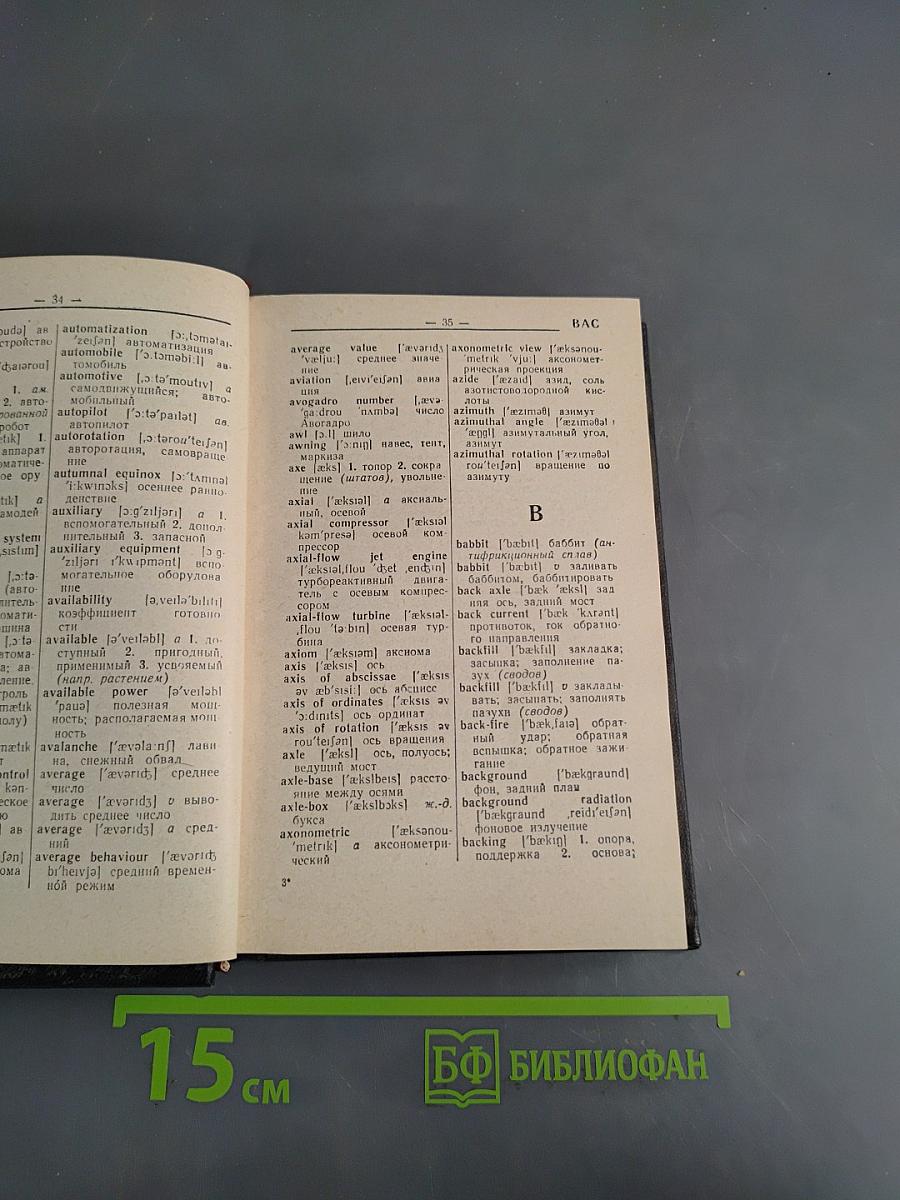 — 34 —
ав
стройство
1. ам.
2. авто-
робот
1.
аппарат
ое ору
a
system
(авто-
шина
a; ав-
ление.
троль
полу)
т
ное
ав
automatization [ɔ:,təmətaɪ-
'zeɪʃən] автоматизация
automobile ['ɔ:təməbi:l] ав-
томобиль
automotive [,ɔ:tə'moutɪv] a
самодвижущийся; авто-
мобильный
autopilot ['ɔ:tə'paɪlət] ав.
автопилот
autorotation [,ɔ:tərou'teɪʃən]
авторотация, самовраще
ние
autumnal equinox [ɔ:'tʌmnəl
'i:kwɪnɔks] осеннее равно-
денствие
auxiliary [ɔ:g'zɪljərɪ] a 1.
вспомогательный 2. допол-
нительный 3. запасной
auxiliary equipment [ɔ:g-
'zɪljərɪ ɪ'kwɪpmənt] вспо-
могательное оборудова
ние
availability [ə,veɪlə'bɪlɪtɪ]
коэффициент готовно-
сти
available [ə'veɪləbl] a 1. до-
ступный 2. пригодный,
применимый 3. усвояемый
(напр. растением)
available power [ə'veɪləbl
'pauə] полезная мощ-
ность; располагаемая мощ
ность
avalanche ['ævəla:nʃ] лави-
на, снежный обвал
average ['ævərɪdʒ] среднее
число
average ['ævərɪdʒ] v выво-
дить среднее число
average ['ævərɪdʒ] a сред-
ний
average behaviour ['ævərɪdʒ
bɪ'heɪvjə] средний времен-
нóй режим
— 35 —
BAC
average value ['ævərɪdʒ
'vælju:] среднее значе
ние
aviation [,eɪvɪ'eɪʃən] авиа
ция
avogadro number [,ævə-
'ga:drou 'nʌmbə] число
Авогадро
awl [ɔ:l] шило
awning ['ɔ:nɪŋ] навес, тент,
маркиза
axe [æks] 1. топор 2. сокра
щение (штатов), увольне-
ние
axial ['æksɪəl] a аксиаль-
ный, осевой
axial compressor ['æksɪəl
kəm'presə] осевой ком-
прессор
axial-flow jet engine
['æksɪəl,flou 'dʒet ,endʒɪn]
турбореактивный двига-
тель с осевым компрес-
сором
axial-flow turbine ['æksɪəl-
,flou 'tə:bɪn] осевая тур-
бина
axiom ['æksɪəm] аксиома
axis ['æksɪs] ось
axis of abscissae ['æksɪs
əv æb'sɪsi:] ось абсцисс
axis of ordinates ['æksɪs əv
'ɔ:dɪnɪts] ось ординат
axis of rotation ['æksɪs əv
rou'teɪʃən] ось вращения
axle ['æksl] ось, полуось;
ведущий мост
axle-base ['ækslbeɪs] рассто-
яние между осями
axle-box ['ækslbɔks] ж.-д.
букса
axonometric ['æksənou-
'metrɪk] a аксонометри-
ческий
3*
axonometric view ['æksənou-
'metrɪk 'vju:] аксономет-
рическая проекция
azide ['æzaɪd] азид, соль
азотистоводородной кис-
лоты
azimuth ['æzɪməθ] азимут
azimuthal angle ['æzɪməθəl
'æŋgl] азимутальный угол,
азимут
azimuthal rotation ['æzɪməθəl
rou'teɪʃən] вращение по
азимуту
B
babbit ['bæbɪt] баббит (ан-
тифрикционный сплав)
babbit ['bæbɪt] v заливать
баббитом, баббитировать
back axle ['bæk 'æksl] зад
няя ось, задний мост
back current ['bæk 'kʌrənt]
противоток, ток обратно-
го направления
backfill ['bækfɪl] закладка;
засыпка; заполнение па-
зух (сводов)
backfill ['bækfɪl] v заклады-
вать; засыпать; заполнять
пазухи (сводов)
back-fire ['bæk,faɪə] обрат-
ный удар; обратная
вспышка; обратное зажи-
гание
background ['bækgraund]
фон, задний план
background radiation
['bækgraund ,reɪdɪ'eɪʃən]
фоновое излучение
backing ['bækɪŋ] 1. опора,
поддержка 2. основа;
15 см
БФ БИБЛИОФАН